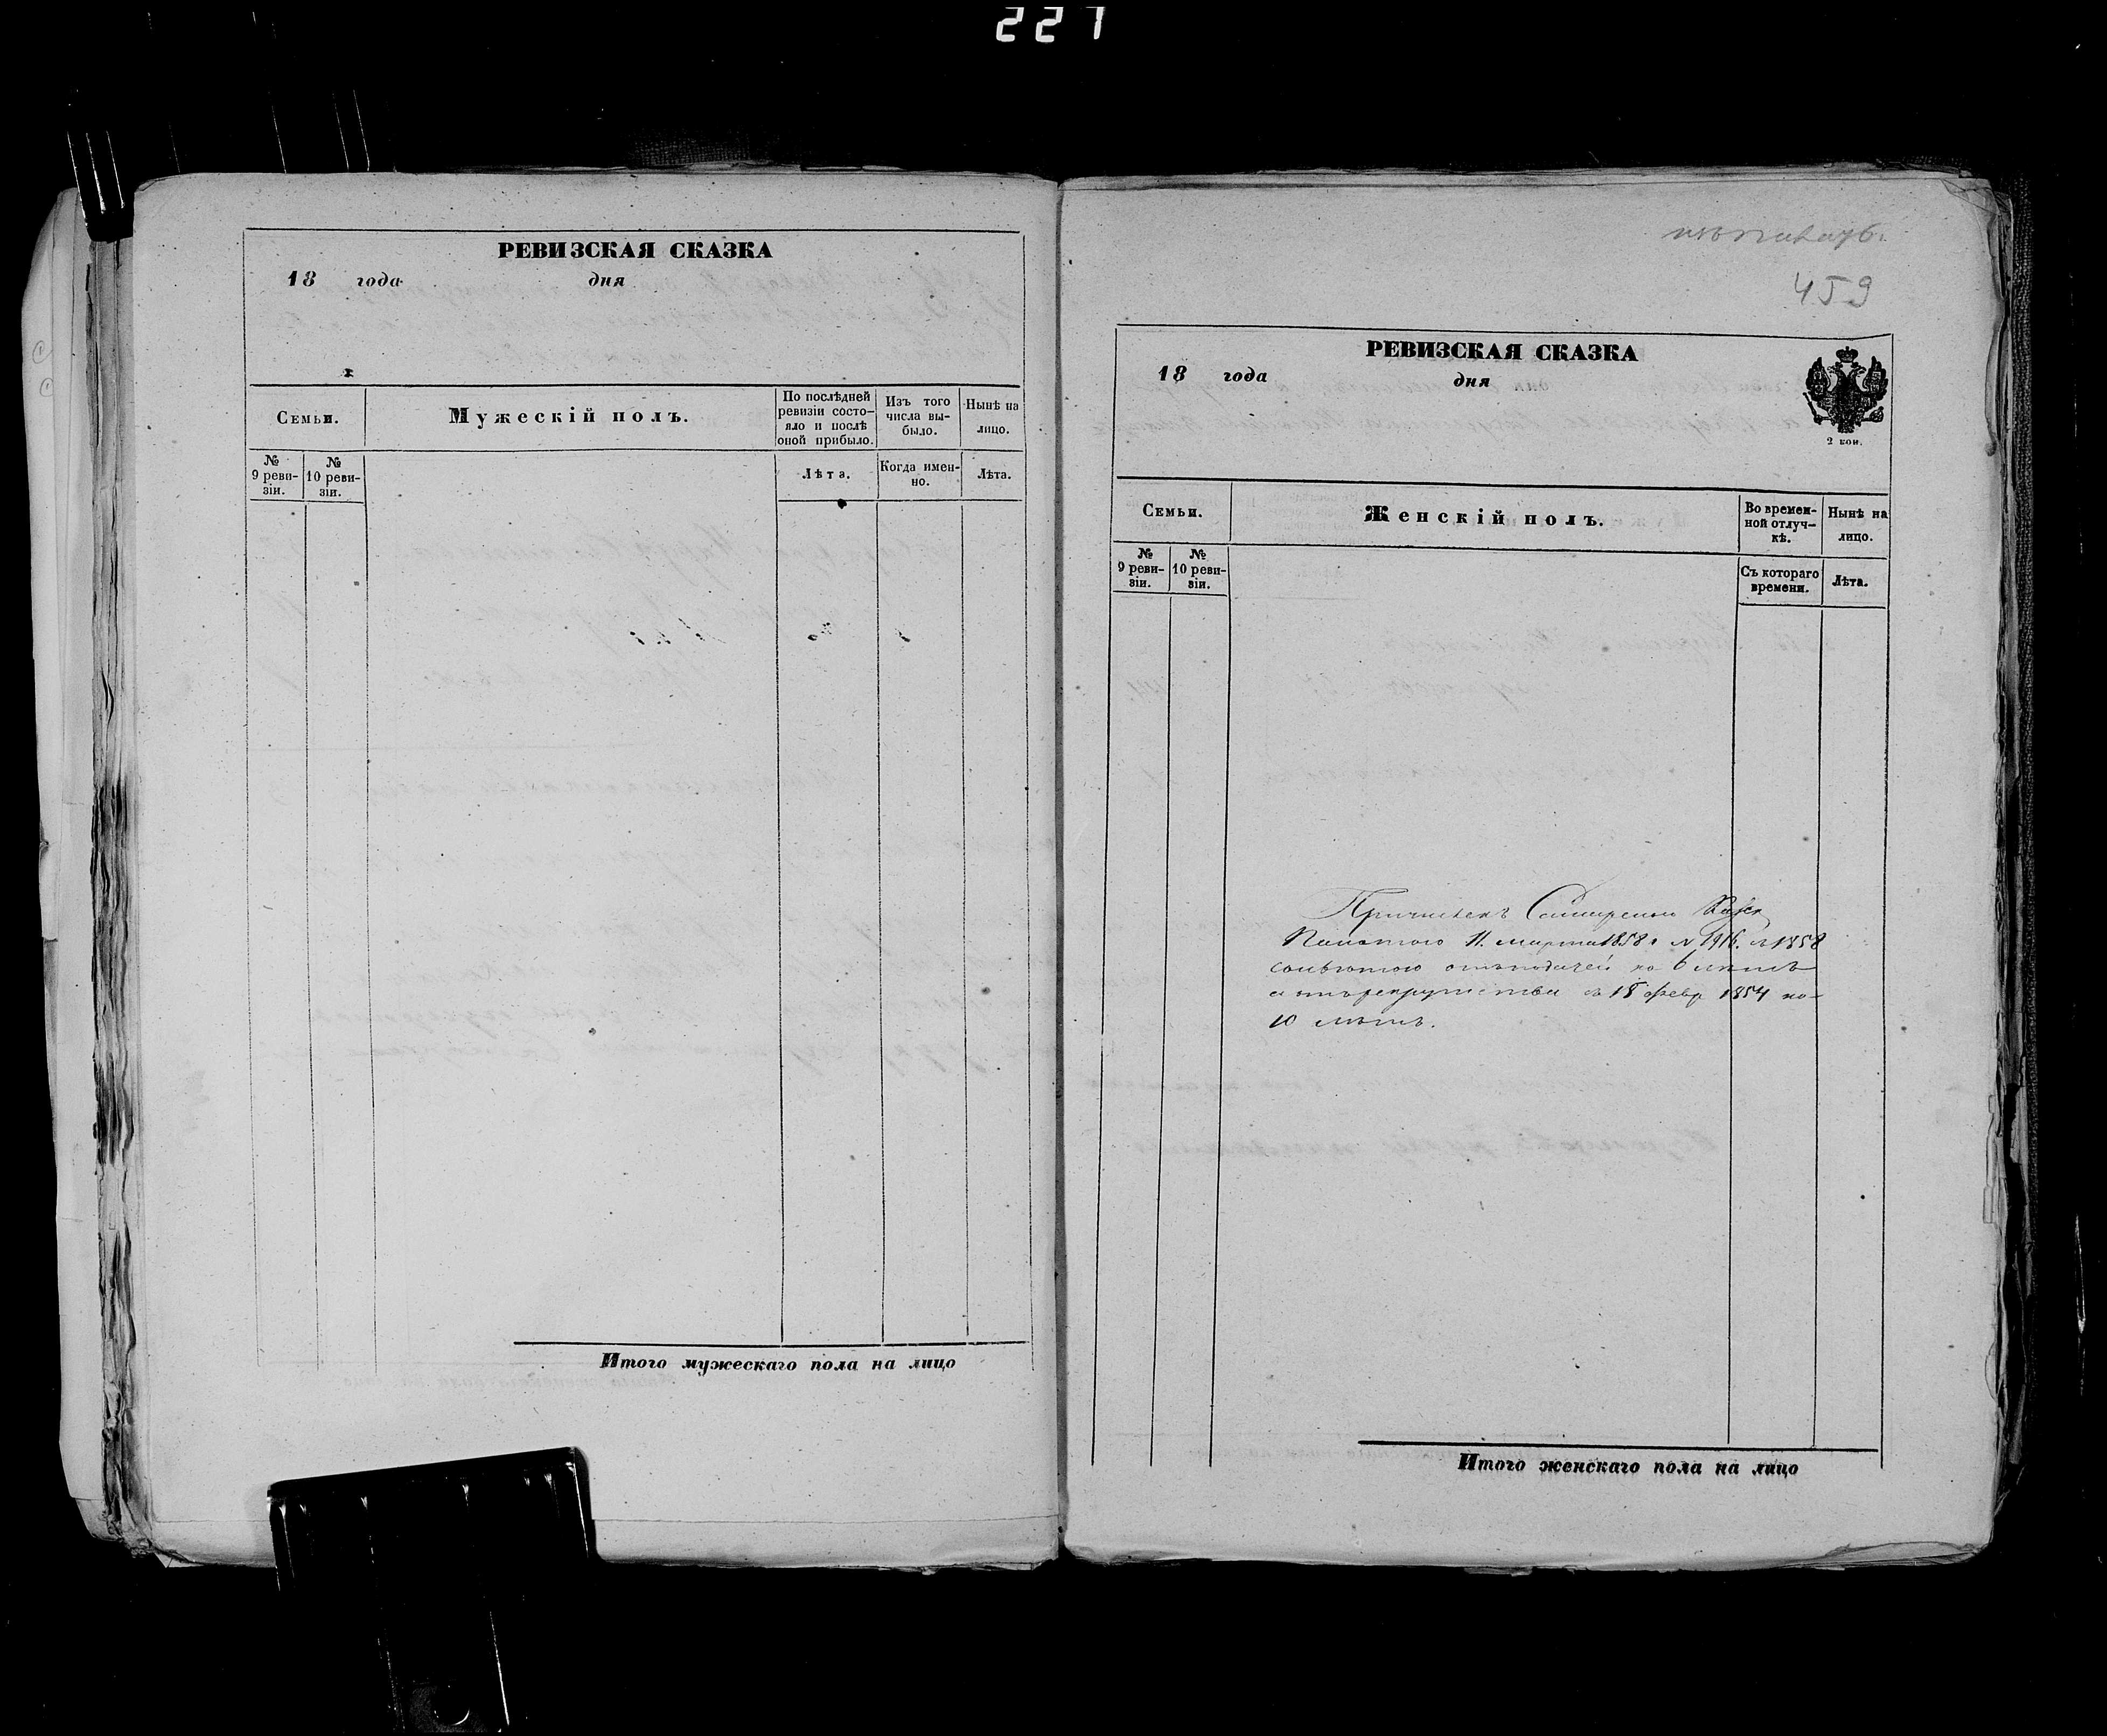 227
РЕВИЗСКАЯ СКАЗКА
18 года дня
Семьи.
Мужескій полъ.
По послѣдней ревизіи состо-
яло и послѣ оной прибыло.
Изъ того числа вы-
было.
Нынѣ на лицо.
№ 9 реви-
зіи.
№ 10 реви-
зіи.
Лѣта.
Когда имен-
но.
Лѣта.
Итого мужескаго пола на лицо
459
РЕВИЗСКАЯ СКАЗКА
18 года дня
2 коп.
Семьи.
Женскій полъ.
Во времен-
ной отлуч-
кѣ.
Нынѣ на лицо.
№ 9 реви-
зіи.
№ 10 реви-
зіи.
Съ котораго времени.
Лѣта.
Причисленъ
Палатою 11. марта 1858 г № 1916. съ 1858
съ льготою отъ податей на 6 лѣтъ
и отъ рекрутства съ 18 февр 1854 на
10 лѣтъ.
Итого женскаго пола на лицо